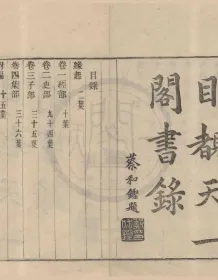 目覩天一
閣書錄
蔡和鏗題
目錄
緣起 二葉
卷一經部 十葉
卷二史部 九十四葉
卷三子部 三十五葉
卷四集部 三十六葉
附編 十五葉